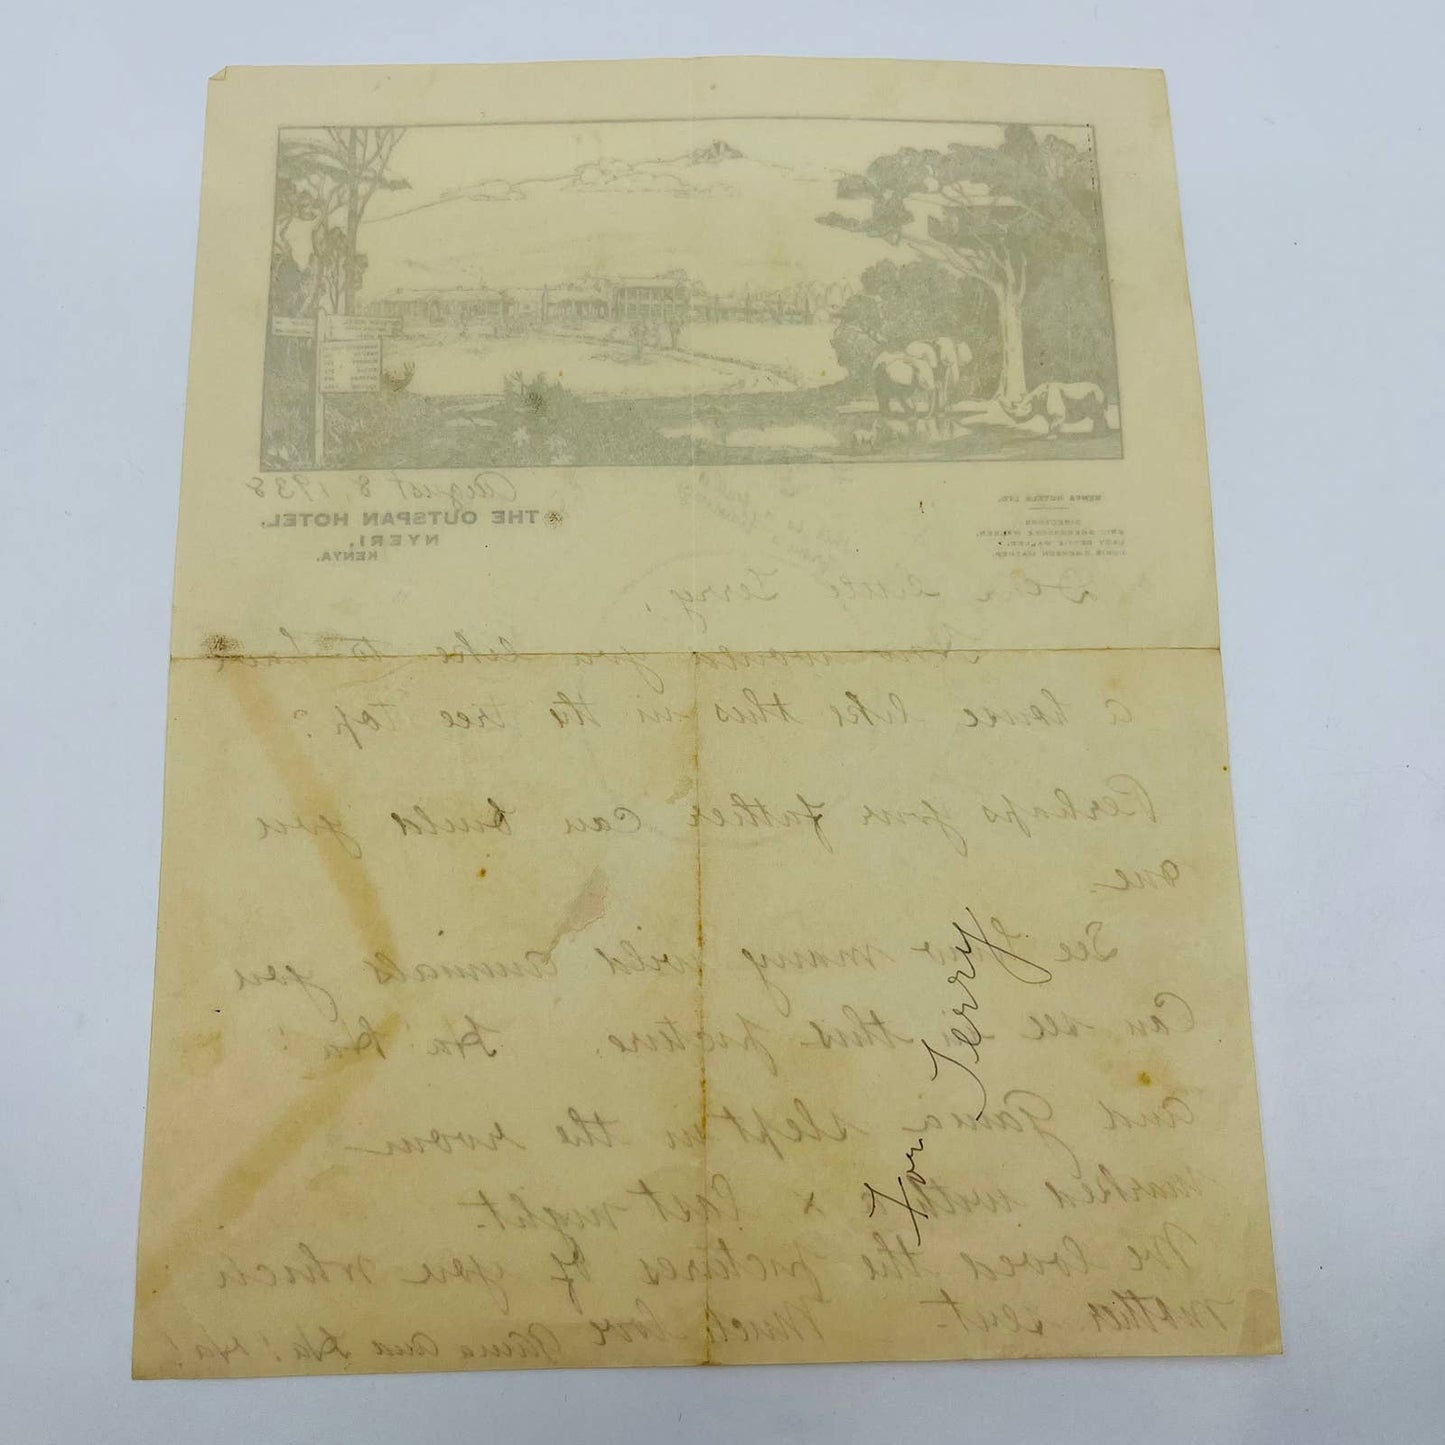 August 8, 1938
THE OUTSPAN HOTEL,
NYERI,
KENYA.
KENYA HOTELS LTD.
DIRECTORS
ERIC SHERBROOKE WALKER.
LADY BETTIE WALKER.
Dear Little Terry,
How would you like to have
a house like this in the tree top?
Perhaps your father can build you
one.
See how many wild animals you
can see in this picture. Ha! Ha!
and Gama slept in the room
marked with x last night.
We loved the pictures of you which
mother sent. Much love Gama and Ha! Ha!
For Terry